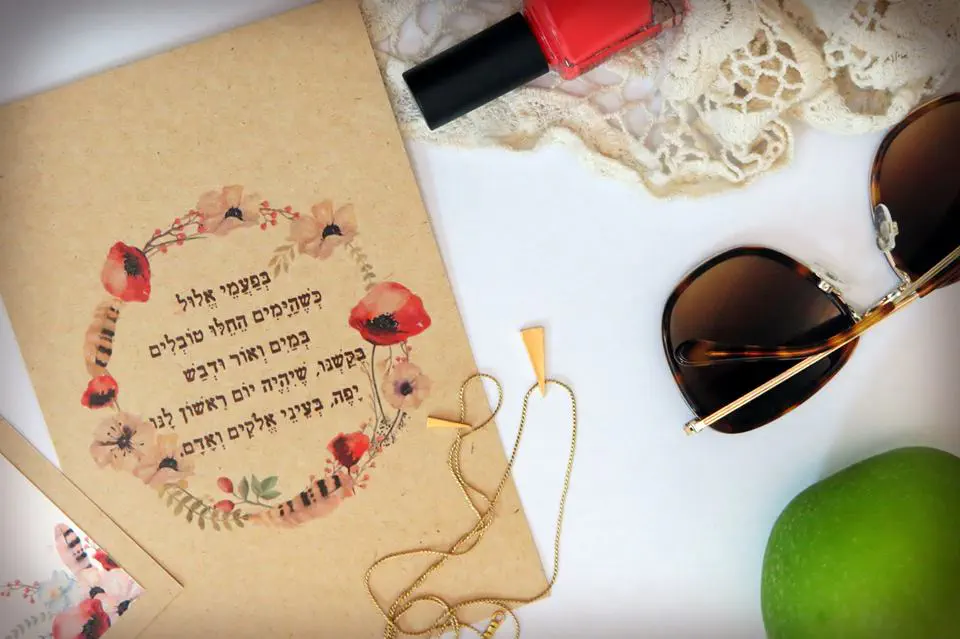 בְּפַעֲמֵי אֱלוּל
כְּשֶׁהַיָּמִים הֵחֵלּוּ טוֹבְלִים
בְּמַיִם וְאוֹר וּדְבַשׁ
בִּקַּשְׁנוּ, שֶׁיִּהְיֶה יוֹם רִאשׁוֹן לָנוּ
יָפֶה, בְּעֵינֵי אֱלֹקִים וְאָדָם.